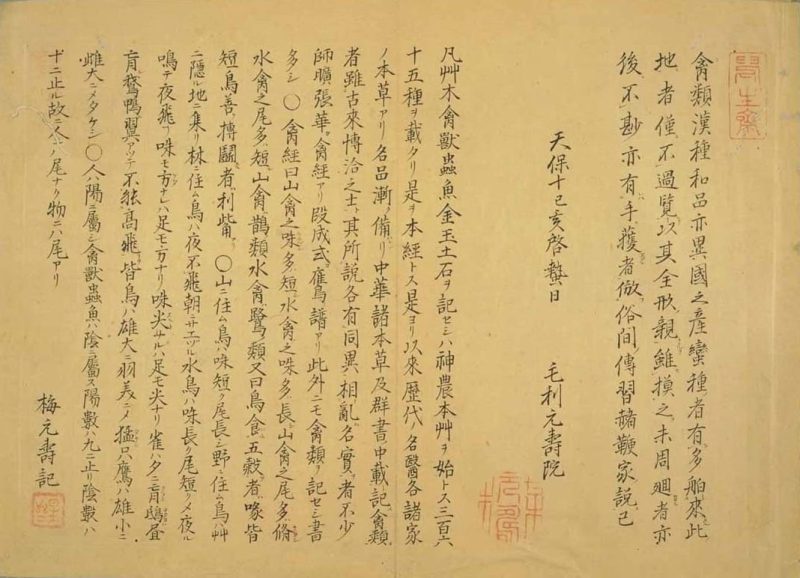 禽類漢種和品亦異國之産蠻種者有多舶來此
地者僅不過覽以其全形親雖模之未周廻者亦
後不尠亦有手獲者倣俗間傳習赭鞭家説已
天保十己亥啓蟄日
毛利元壽院
凡艸木禽獸蟲魚金玉土石ヲ記セシハ神農本艸ヲ始トス三百六
十五種ヲ載タリ是ヲ本經トス是ヨリ以來歴代ノ名醫各諸家
ノ本草アリ名品漸ク備リ中華諸本草及群書中載記禽類
者雖古來博洽之士其所説各有同異相亂名實者不少
師曠張華禽經アリ段成式鷹譜アリ此外ニモ禽類ヲ記セシ書
多シ〇禽經曰山禽之咮多短水禽之咮多長山禽之尾多脩
水禽之尾多短山禽鵲類水禽鷺類又曰鳥食五穀者喙皆
短鳥善搏鬪者利觜〇山ニ住ム鳥ハ咮短ク尾長シ野ニ住ム鳥ハ艸
ニ隱ル地ニ集リ林ニ住ム鳥ハ夜不飛朝ニサエヅル水鳥ハ咮長ク尾短クメ夜ル
鳴テ夜飛フ咮モ方ナレハ足モ方ナリ咮尖サルハ足モ尖ナリ雀ハ夕ニ肓鴟昼
肓鶩鴨翼アツテ不能高飛皆鳥ハ雄大ニ羽美ニメ猛只鷹ハ雄小ニ
雌大ニメタケシ〇人ハ陽ニ屬シ禽獸蟲魚ハ陰ニ屬ス陽數ハ九ニ止リ陰數ハ
十ニ止ル故ニ人ハ尾ナク物ニハ尾アリ
梅元壽記